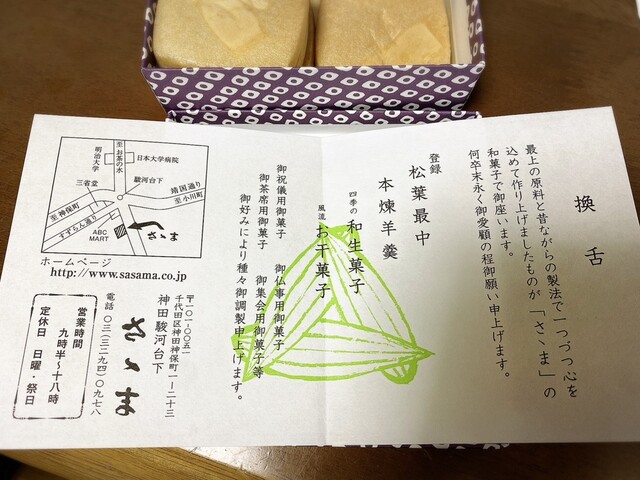 換舌
最上の原料と昔ながらの製法で一つづつ心を
込めて作り上げましたものが「さゝま」の
和菓子で御座います。
何卒末永く御愛顧の程御願い申上げます。
登録 松葉最中
本煉羊羹
四季の 和生菓子
風流 お干菓子
御祝儀用御菓子 御仏事用御菓子
御茶席用御菓子 御集会用御菓子等
御好みにより種々御調製申上げます。
明治大学
至お茶の水
日本大学病院
三省堂
駿河台下
靖国通り
至小川町
至神保町
すずらん通り
ABC
MART
さゝま
ホームページ
http://www.sasama.co.jp
〒一〇一-〇〇五一
千代田区神田神保町一-二十三
神田駿河台下
さゝま
電話 〇三(三二九四)〇九七八
営業時間
九時半～十八時
定休日 日曜・祭日